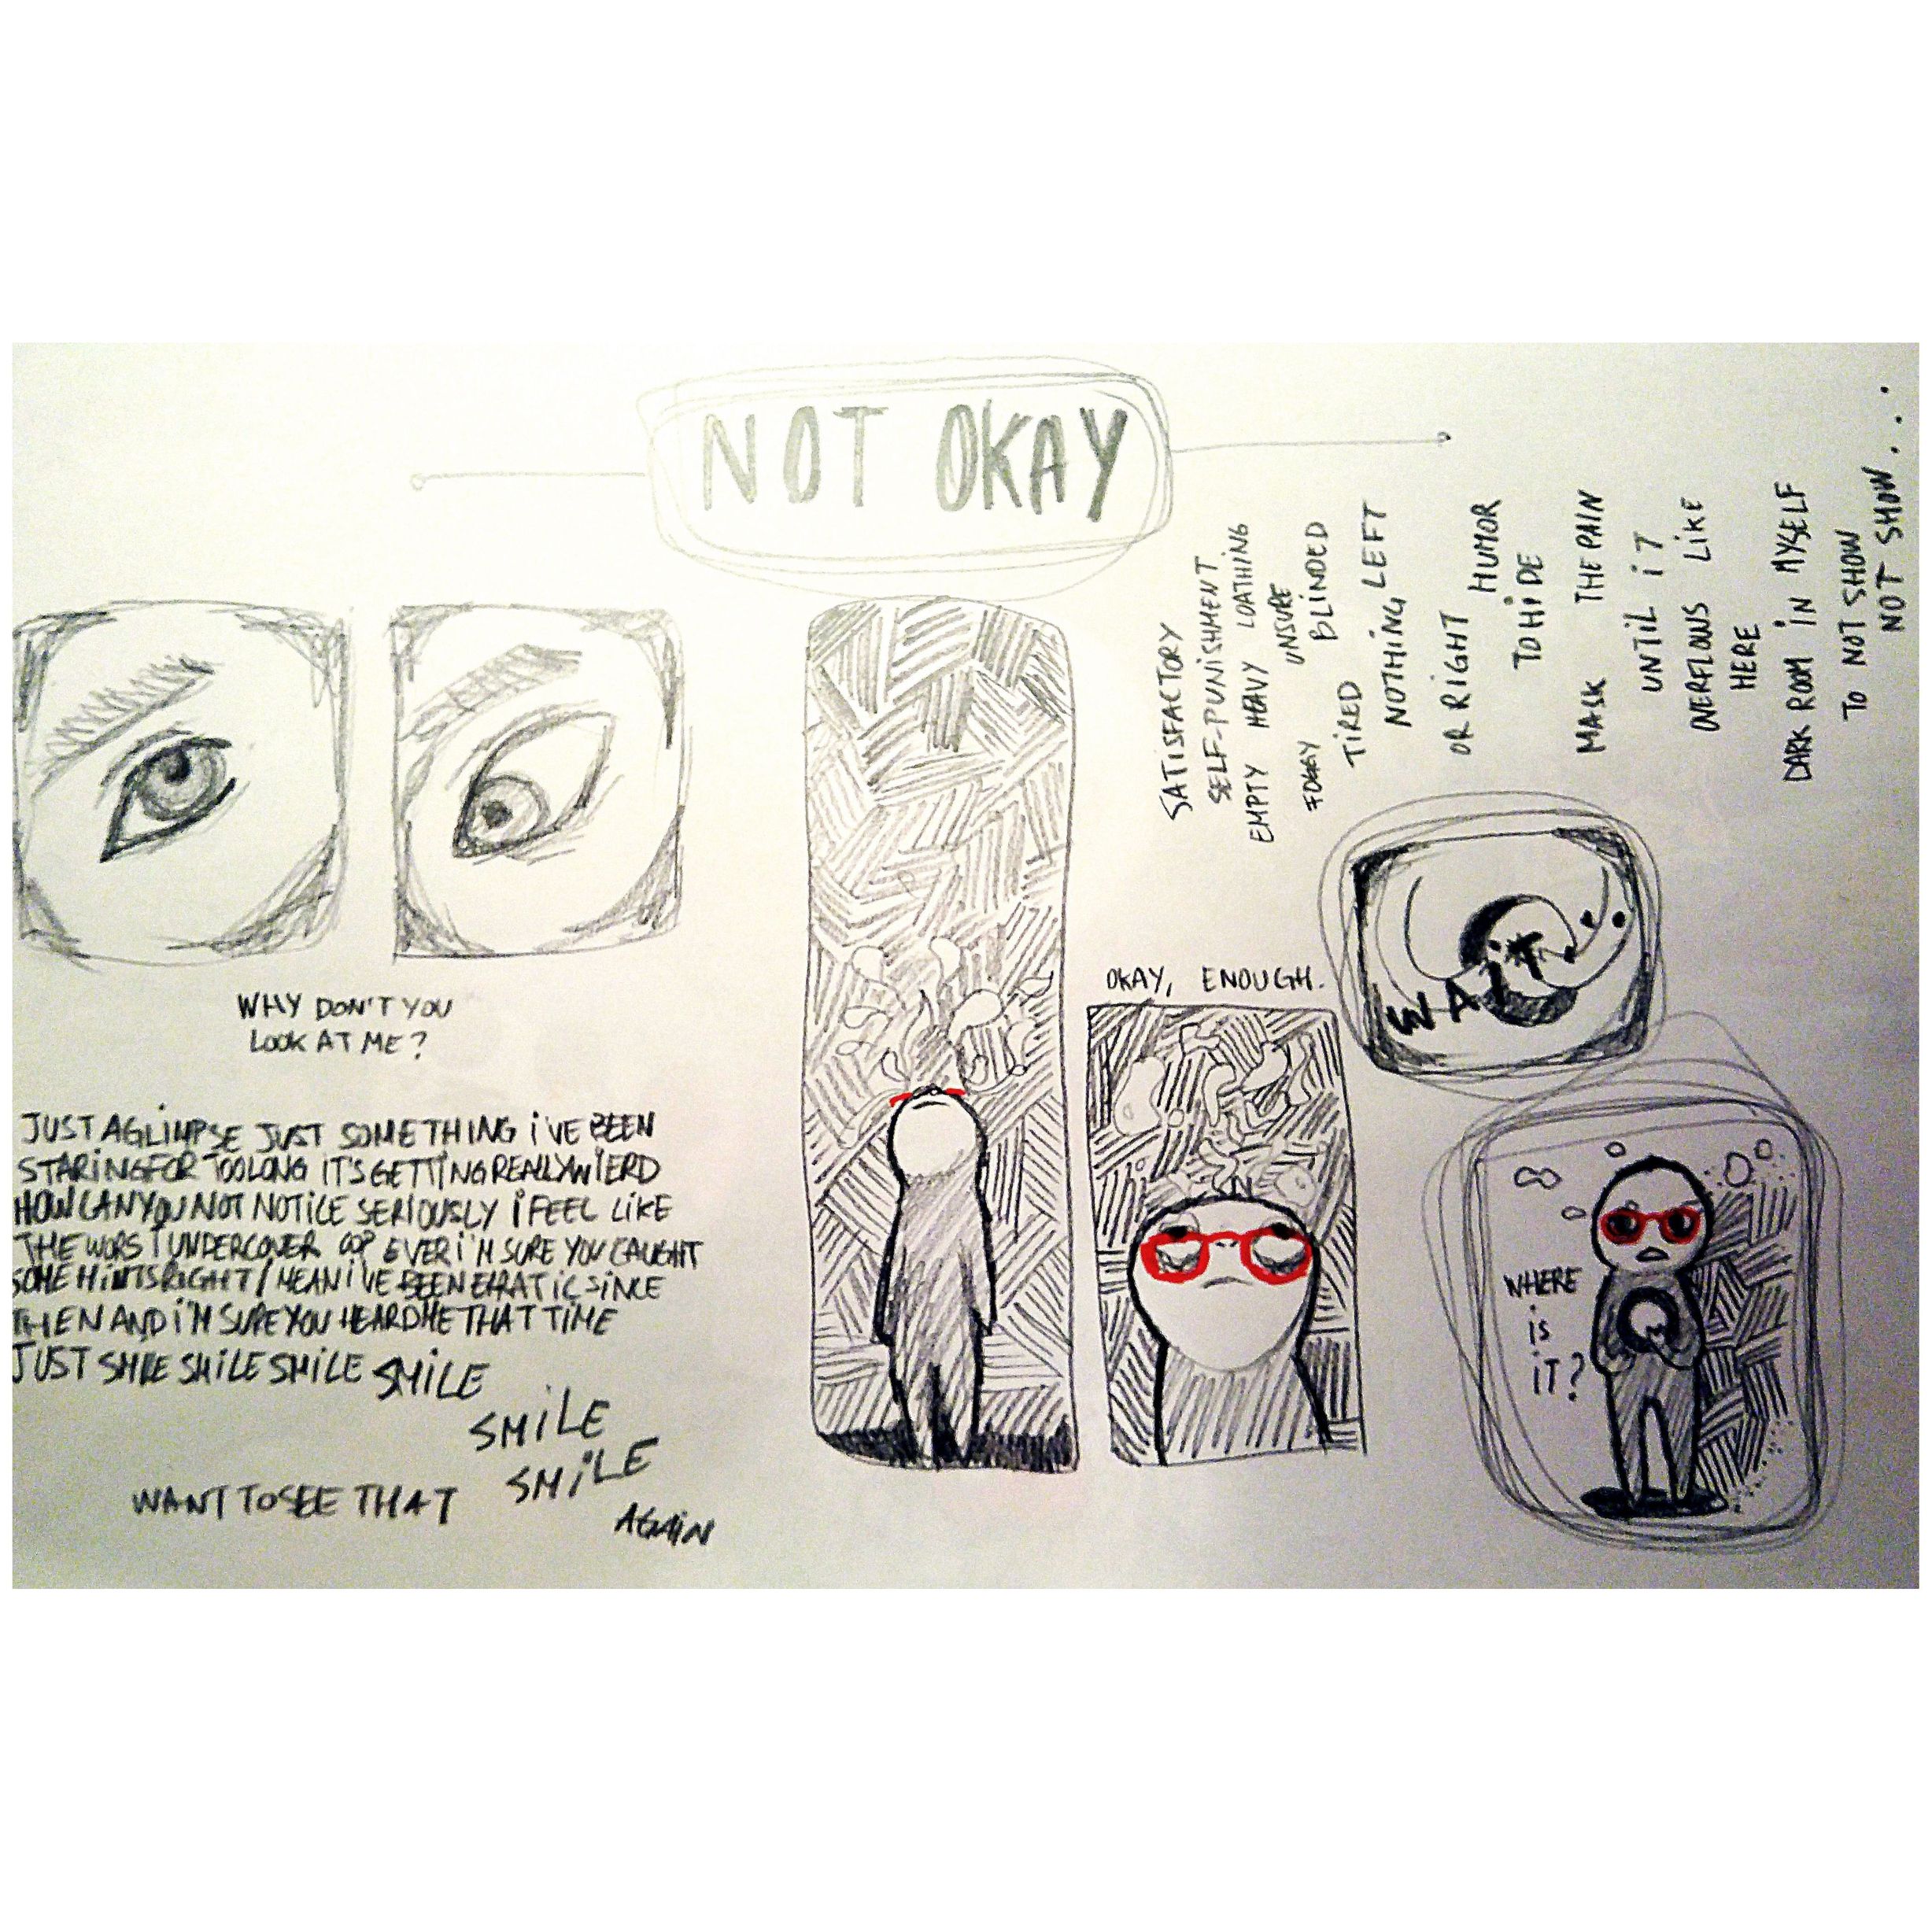 NOT OKAY
WHY DON'T YOU
LOOK AT ME?
JUST A GLIMPSE JUST SOMETHING i'VE BEEN
STARING FOR TOO LONG IT'S GETTING REALLY WIERD
HOW CAN YOU NOT NOTICE SERIOUSLY i FEEL LIKE
THE WORST UNDERCOVER COP EVER i'M SURE YOU CAUGHT
SOME HINTS RIGHT I MEAN i'VE BEEN ERRATIC SINCE
THEN AND i'M SURE YOU HEARD ME THAT TIME
JUST SMILE SMILE SMILE
SMiLE
SMiLE
WANT TO SEE THAT
AGAIN
SATiSFACTORY
SELF-PUNiSHMENT
EMPTY HEAVY LOATHING
FOGGY UNSURE
TIRED BLINDED
NOTHING LEFT
OR RIGHT HUMOR
TO HiDE
MASK THE PAIN
UNTiL iT
OVERFLOWS LiKE
HERE
DARK ROOM IN MYSELF
To NOT SHOW
NOT SHOW...
OKAY, ENOUGH.
WAiT...
WHERE
is
iT?